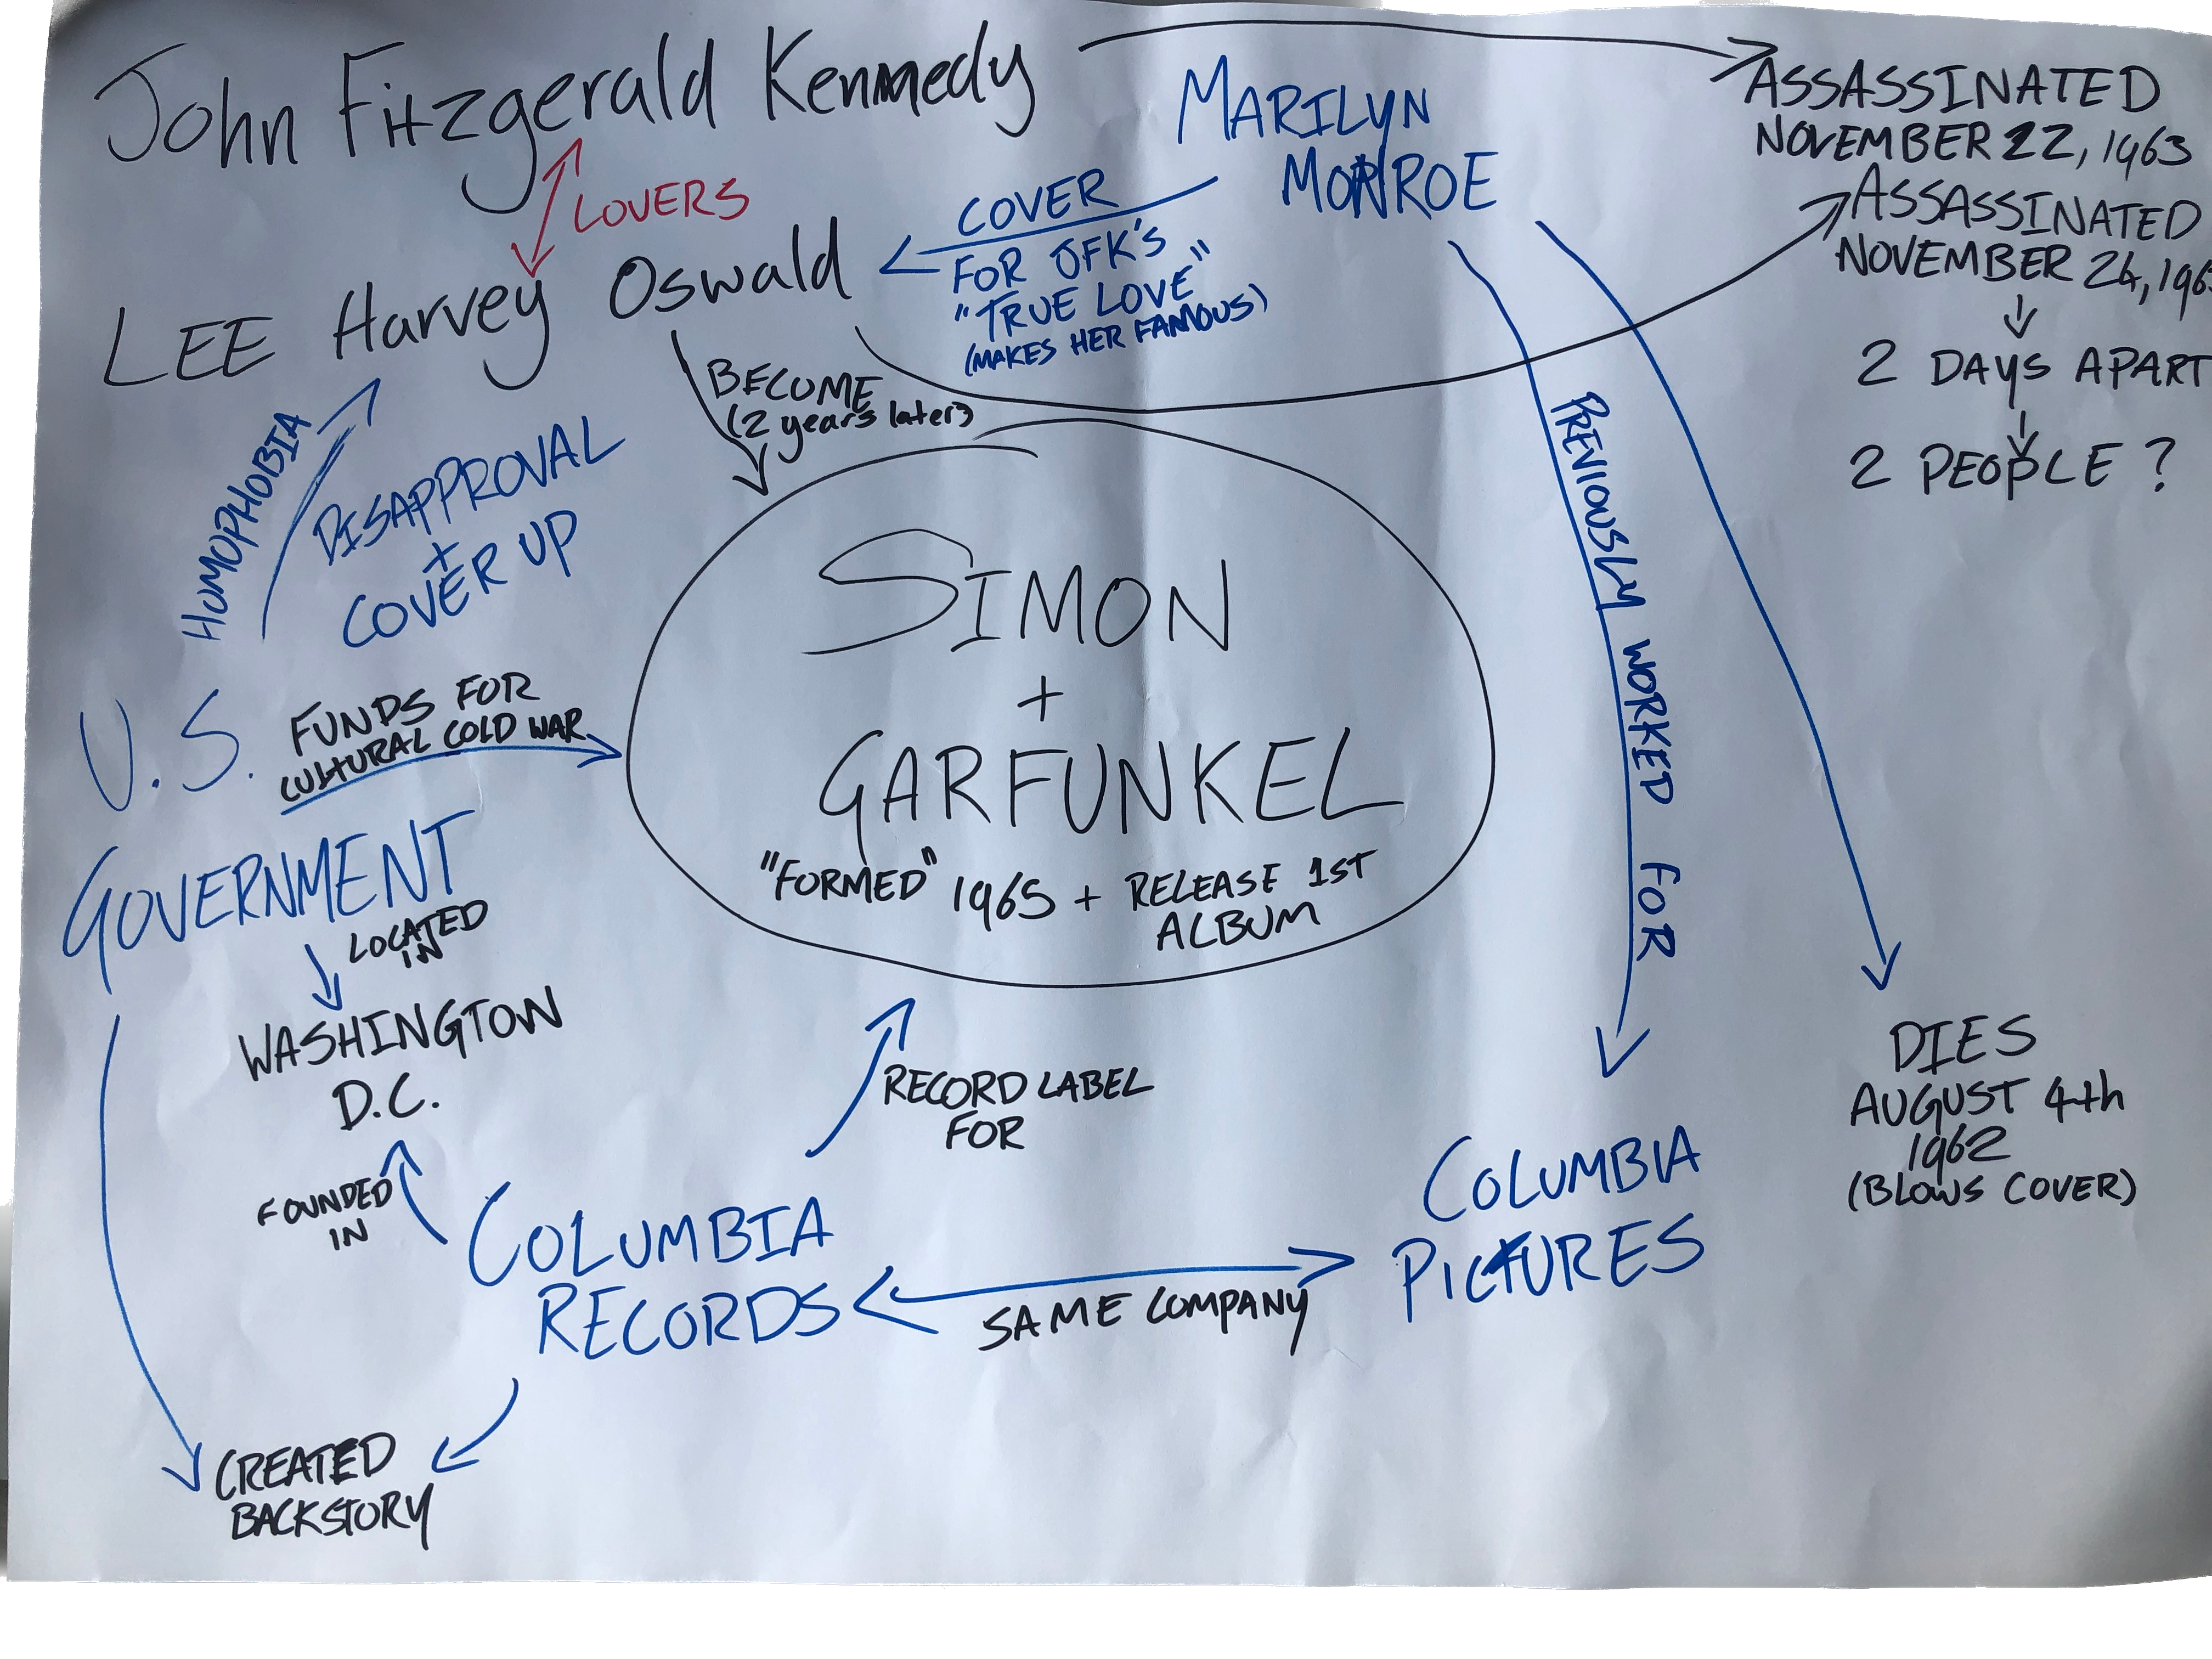 John Fitzgerald Kennedy
ASSASSINATED
NOVEMBER 22, 1963
MARILYN
MONROE
LOVERS
COVER
FOR JFK'S
"TRUE LOVE"
(MAKES HER FAMOUS)
ASSASSINATED
NOVEMBER 24, 196
2 DAYS APART
2 PEOPLE ?
LEE Harvey Oswald
BECOME
(2 years later)
HOMOPHOBIA
DISAPPROVAL
+
COVER UP
PREVIOUSLY WORKED FOR
SIMON
+
GARFUNKEL
"FORMED" 1965 + RELEASE 1ST
ALBUM
U.S.
GOVERNMENT
FUNDS FOR
CULTURAL COLD WAR
LOCATED
IN
WASHINGTON
D.C.
RECORD LABEL
FOR
DIES
AUGUST 4th
1962
(BLOWS COVER)
FOUNDED
IN
COLUMBIA
RECORDS
SAME COMPANY
COLUMBIA
PICTURES
CREATED
BACKSTORY